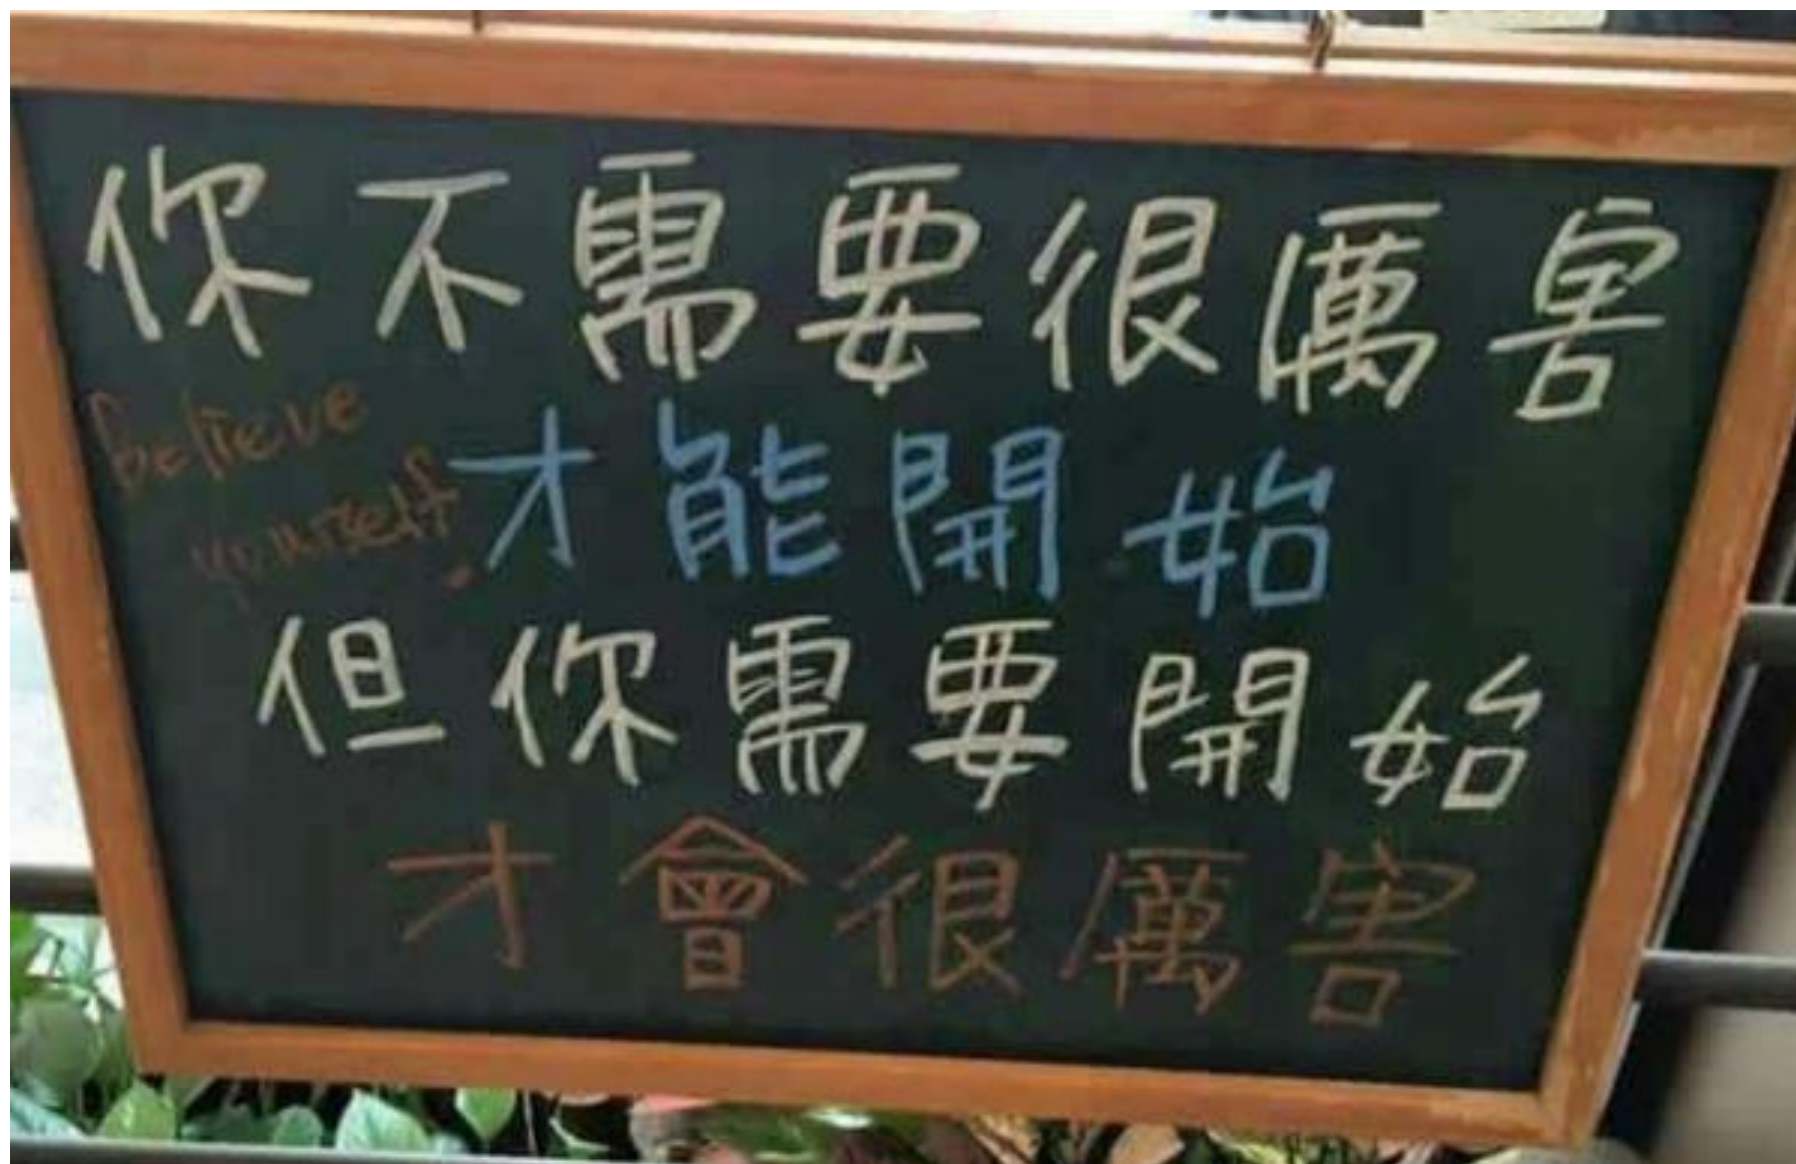 你不需要很厲害
believe
yourself.
才能開始
但你需要開始
才會很厲害